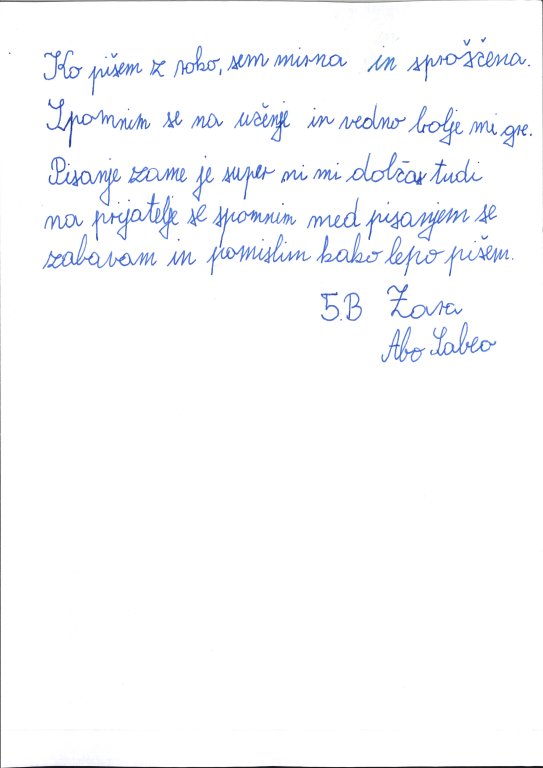 Ko pišem z roko, sem mirna in sproščena.
Spomnim se na učenje in vedno bolje mi gre.
Pisanje zame je super ni mi dolčas tudi
na prijatelje se spomnim med pisanjem se
zabavam in pomislim kako lepo pišem.
5.B Zara
Abo